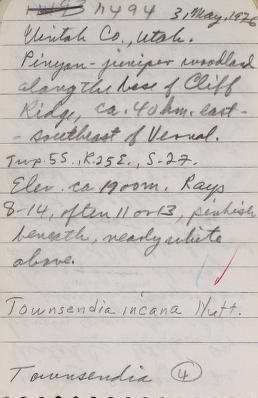 7494 3, May, 1976
Uintah Co., Utah.
Pinyon-juniper woodland
along the base of Cliff
Ridge, ca. 40 km. east-
-southeast of Vernal.
Twp. 5S., R.25E., S-27.
Elev. ca 1900m. Rays
8-14, often 11 or 13, pinkish
beneath, nearly white
above.
Townsendia incana Nutt.
Townsendia 4